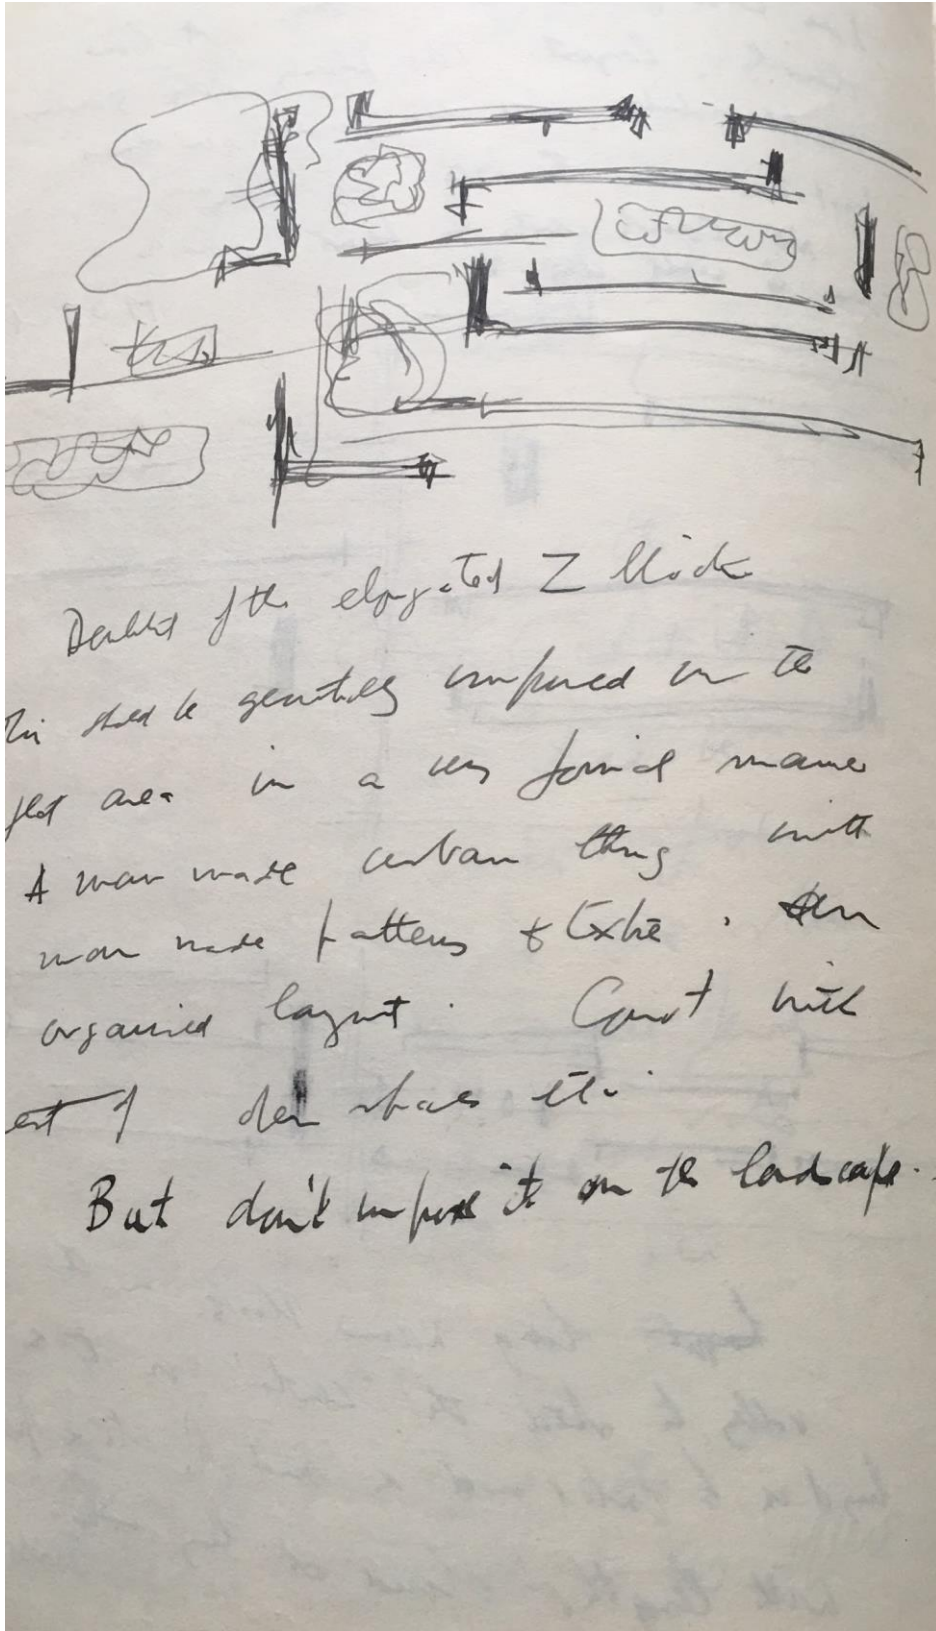 of the elongated Z block
This should be generally imposed on the
flat area in a very formal manner
A man made urban thing with
man made patterns &
organised layout. with
of open spaces etc.
But don't impose it on the landscape.